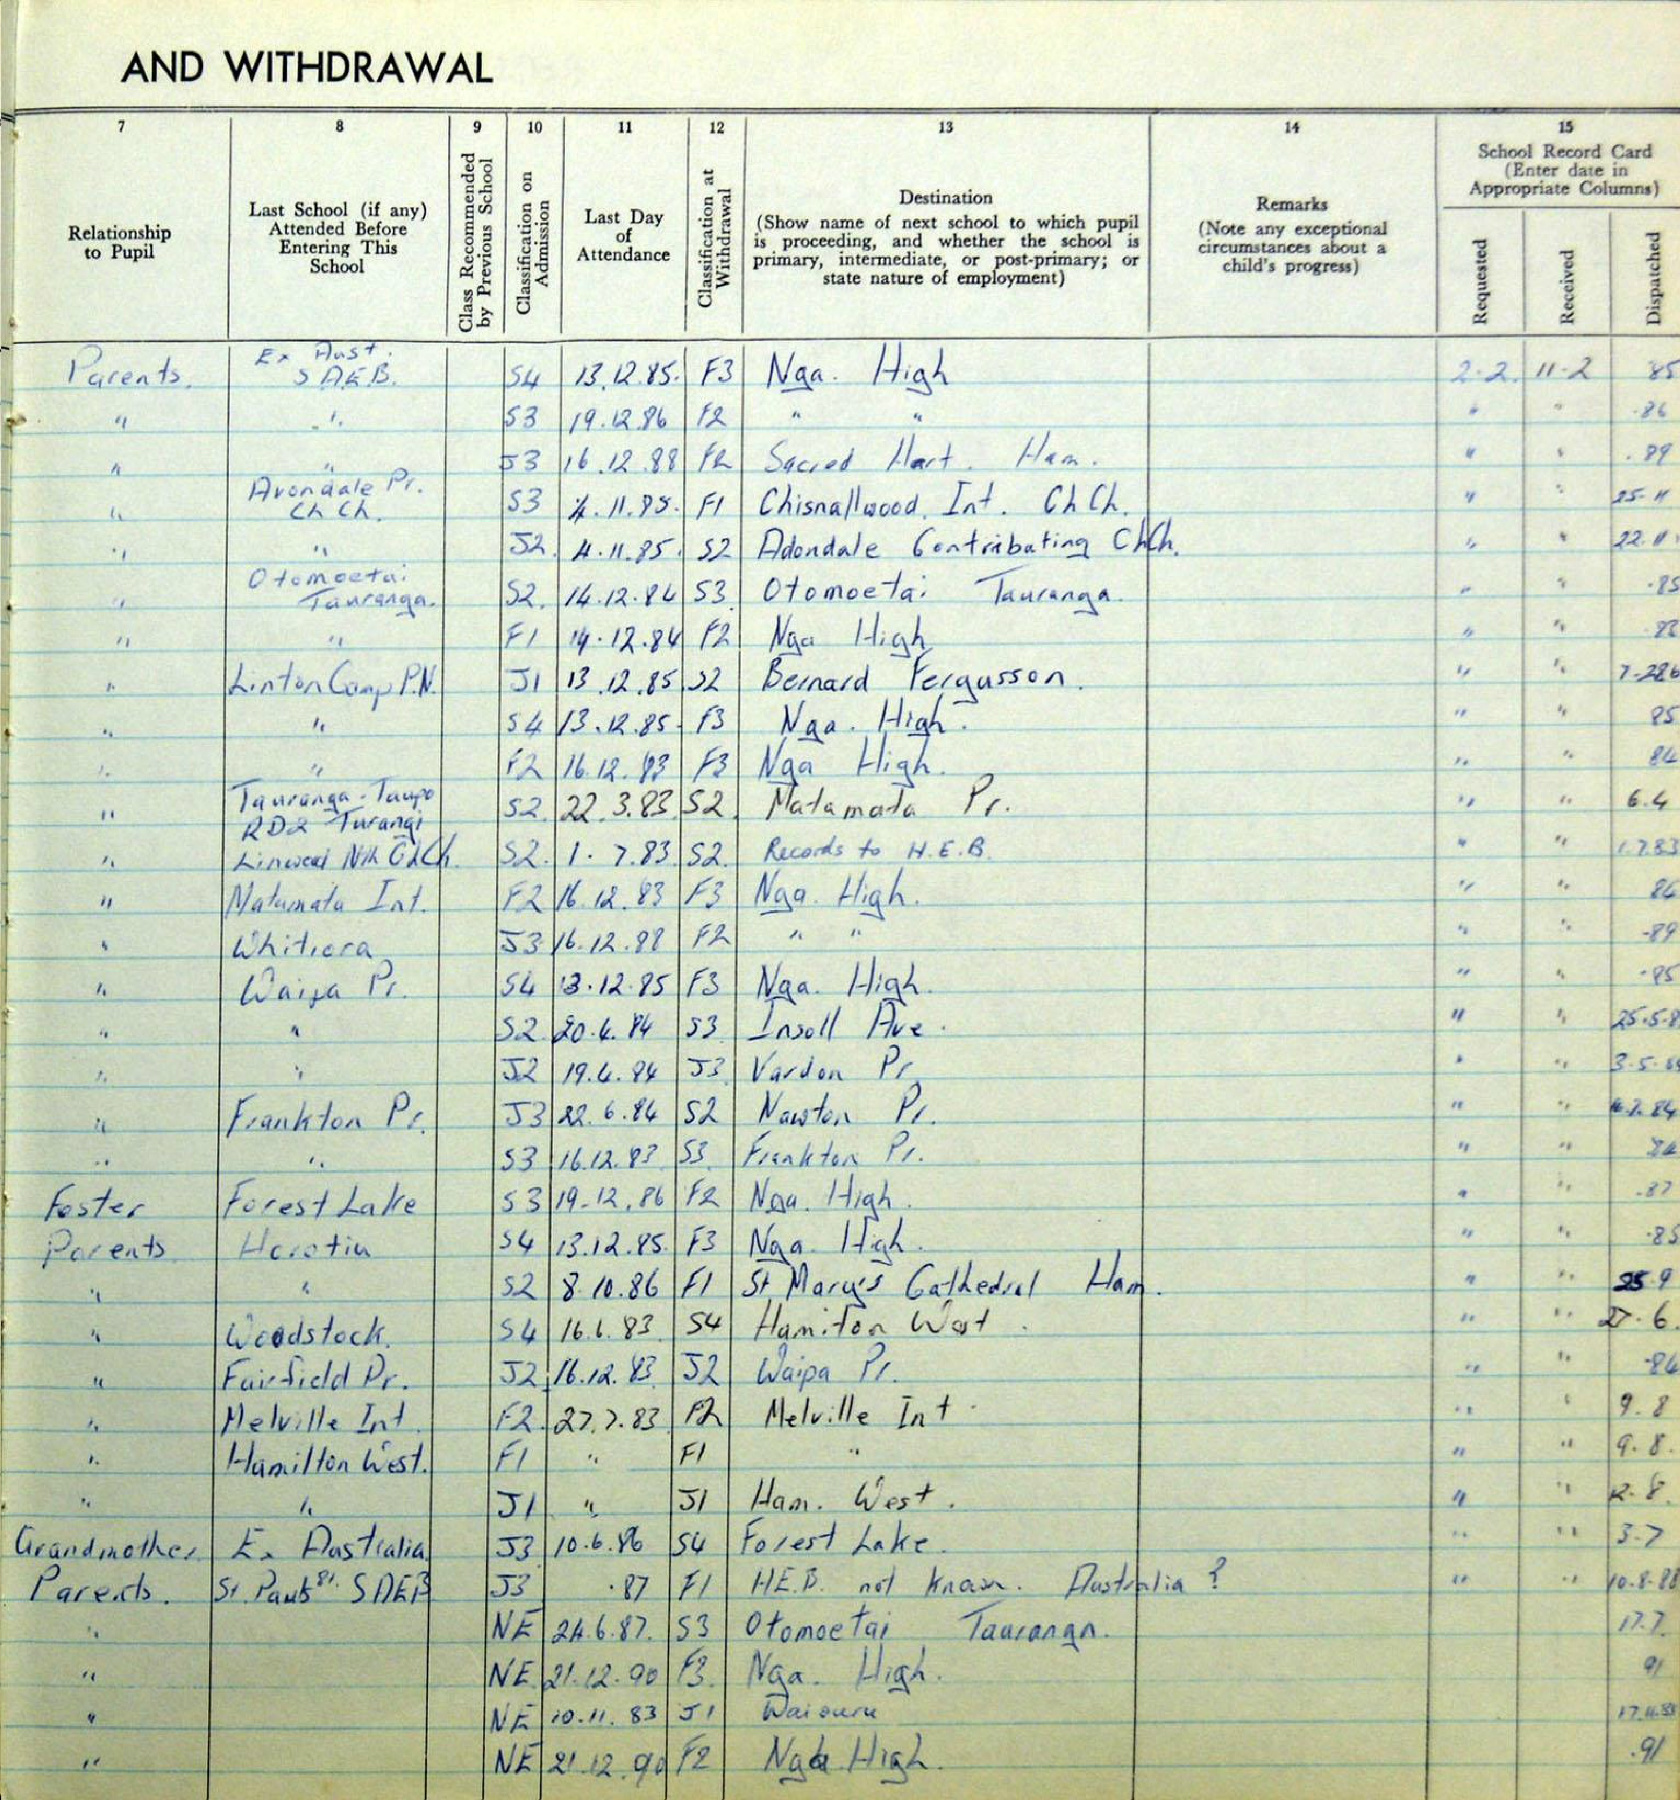 AND WITHDRAWAL
7 8 9 10 11 12 13 14 15
Relationship to Pupil
Last School (if any) Attended Before Entering This School
Class Recommended by Previous School
Classification on Admission
Last Day of Attendance
Classification at Withdrawal
Destination
(Show name of next school to which pupil is proceeding, and whether the school is primary, intermediate, or post-primary; or state nature of employment)
Remarks
(Note any exceptional circumstances about a child's progress)
School Record Card
(Enter date in Appropriate Columns)
Requested Received Dispatched
Parents. Ex Aust. S.A.E.B. S4 13.12.85. F3 Nga. High 2.2. 11-2 85
" " S3 19.12.86 F2 " " " " .86
" " J3 16.12.88 F2 Sacred Hart. Ham. " " .89
" Avondale Pr. Ch Ch. S3 4.11.85. F1 Chisnallwood. Int. Ch Ch. " " 25-11
" " J2. 4.11.85. S2 Adondale Contributing ChCh. " " 22.11
" Otomoetai Tauranga. S2. 14.12.84 S3. Otomoetai Tauranga. " " .85
" " F1 14.12.84 F2 Nga High " "
" Linton Camp P.N. J1 13.12.85 S2 Bernard Fergusson. " " 7-286
" " S4 13.12.85- F3 Nga. High. " " 85
" " F2 16.12.83 F3 Nga High. " " 84
" Tauranga-Taupo RD2 Turangi S2. 22.3.83 S2. Matamata Pr. " " 6.4
" Linwood Nth ChCh S2. 1.7.83 S2. Records to H.E.B. " " 1.7.83
" Matamata Int. F2 16.12.83 F3 Nga. High. " " 84
" Whitiora J3 16.12.88 F2 " " " " -89
" Waipa Pr. S4 13.12.85 F3 Nga. High. " " -85
" " S2 20.4.84 S3 Insoll Ave. " " 25.5.8
" " J2 19.4.84 J3 Vardon Pr. " " 3-5-84
" Frankton Pr. J3 22.6.84 S2 Nawton Pr. " "
" " S3 16.12.83 S3. Frankton Pr. " " 84
Foster Forest Lake S3 19-12.86 F2 Nga. High. " " -87
Parents Horotiu S4 13.12.85. F3 Nga. High. " " -85
" " S2 8.10.86 F1 St. Mary's Cathedral Ham. " " 25.9
" Woodstock. S4 16.6.83. S4 Hamilton West. " " 27.6.
" Fairfield Pr. J2 16.12.83. J2 Waipa Pr. " " -84
" Melville Int F2. 27.7.83 F2 Melville Int. " " 9.8
" Hamilton West. F1 " F1 " " " 9.8.
" " J1 " J1 Ham. West. " " 12.8.
Grandmother Ex Australia J3 10.6.86 S4 Forest Lake. " " 3-7
Parents. St. Pauls SAEB J3 .87 F1 H.E.B. not known. Australia ? " " 10-8-88
" NE 24.6.87. S3 Otomoetai Tauranga. 17.7.
" NE 21.12.90 F3. Nga. High. 91
" NE 10.11.83 J1 Waiouru
" NE 21.12.90 F2 Nga High. .91